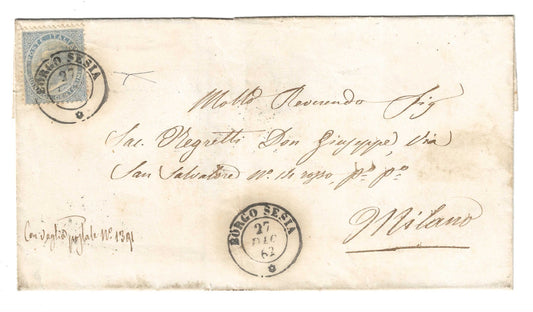 BORGO SESIA
27
Molto Reverendo Sig
Sac. Negretti Don Giuseppe, Via
San Salvatore N.º
Milano
BORGO SESIA
27
DIC
63
Con vaglia postale Nº 1391